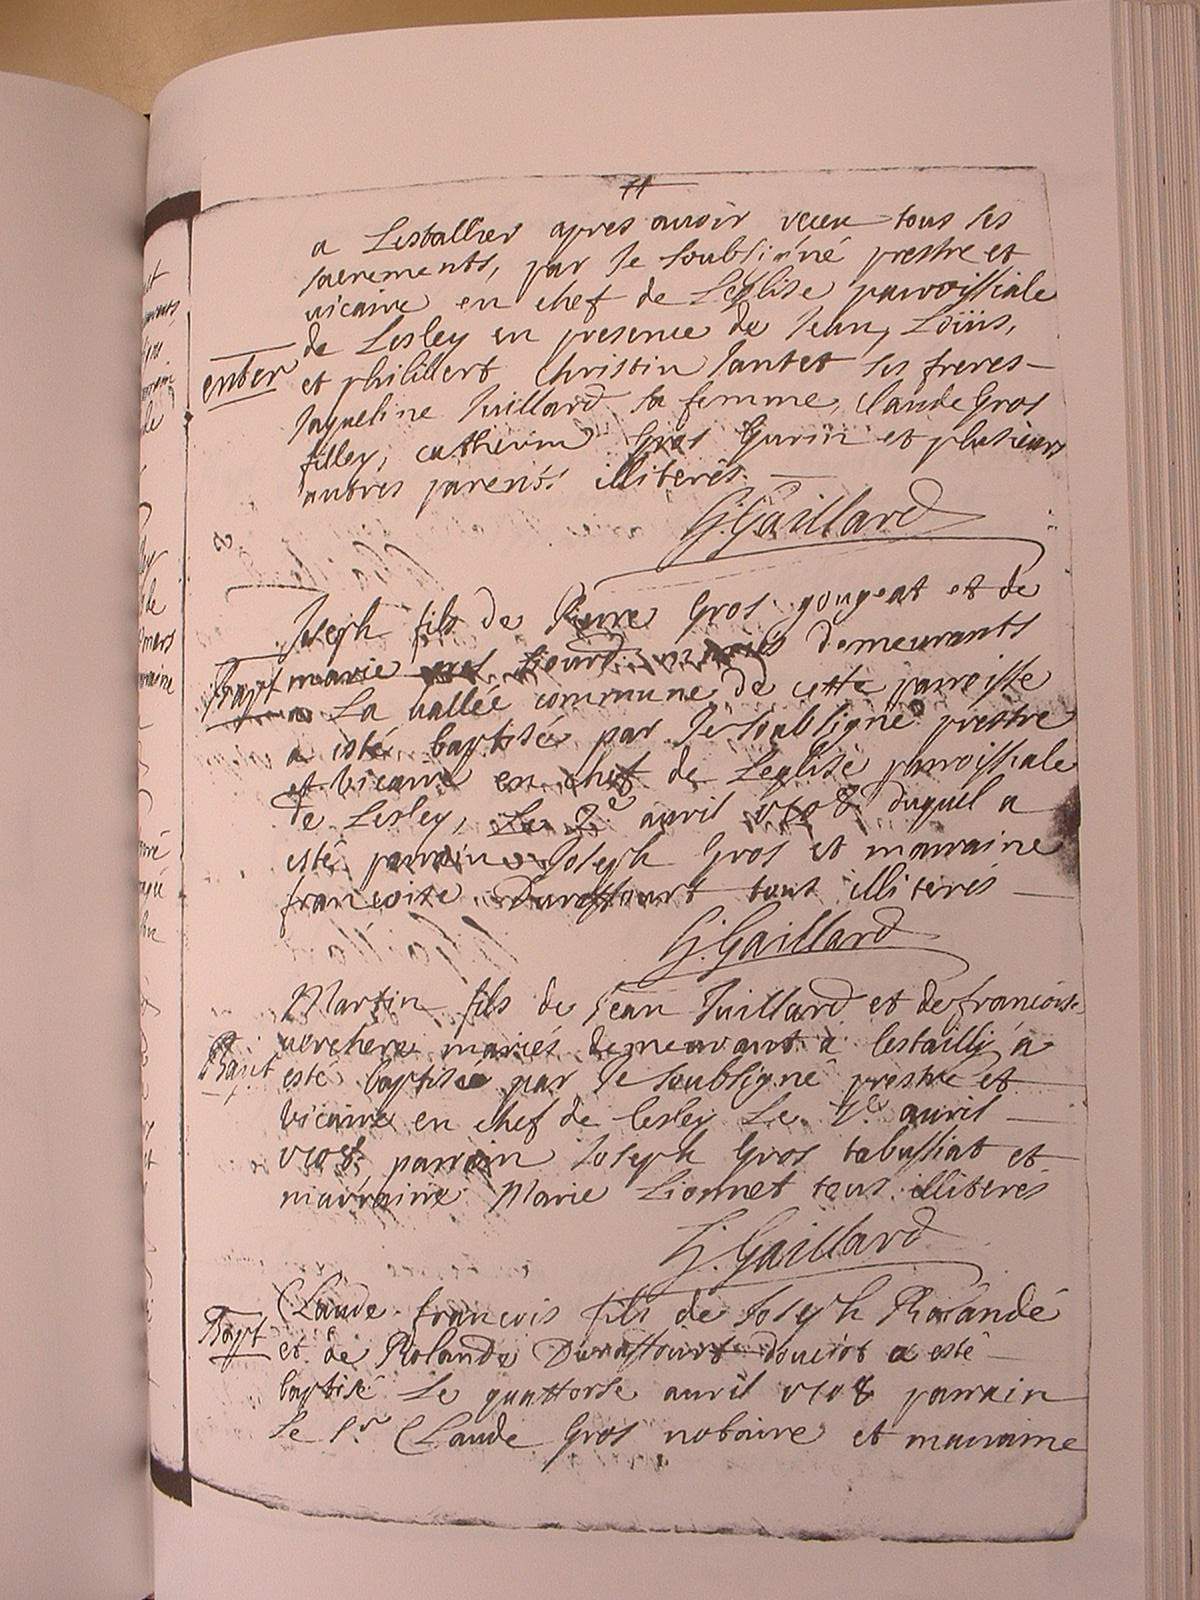 11
a Lestallier apres avoir receu tous ses
sacrements, par le soubsigné prestre et
vicaire en chef de Leglise parroissiale
de Lesley en presence de Jean, Loüis,
enter
et philibert Christin Jantet ses freres
Jaqueline Juillard sa femme, Claude Gros
filley, catherine Gros Gurin et plusieurs
autres parents illiterés
G. Gaillard
Joseph fils de Pierre Gros gougeat et de
Bapt
marie mariés demeurants
a La vallée commune de cette parroisse
a esté baptisé par le soubsigné prestre
et vicaire en chef de Leglise parroissiale
de Lesley, Le 2e avril v108 duquel a
esté parrain Joseph Gros et marraine
françoise Duraffourt tous illiterés
G. Gaillard
Martin fils de Jean Juillard et de francoise
Bapt
verchere mariés demeurant à lestallié a
esté baptisé par le soubsigné prestre et
vicaire en chef de Lesley Le avril
v108 parrain Joseph Gros tabussiat et
marraine Marie Lionnet tous illiterés
G. Gaillard
Claude françois fils de Joseph Rolandé
Bapt
et de Rolande Duraffourt douciot a esté
baptisé Le quattorse avril v108 parrain
le Sr Claude Gros notaire et marraine